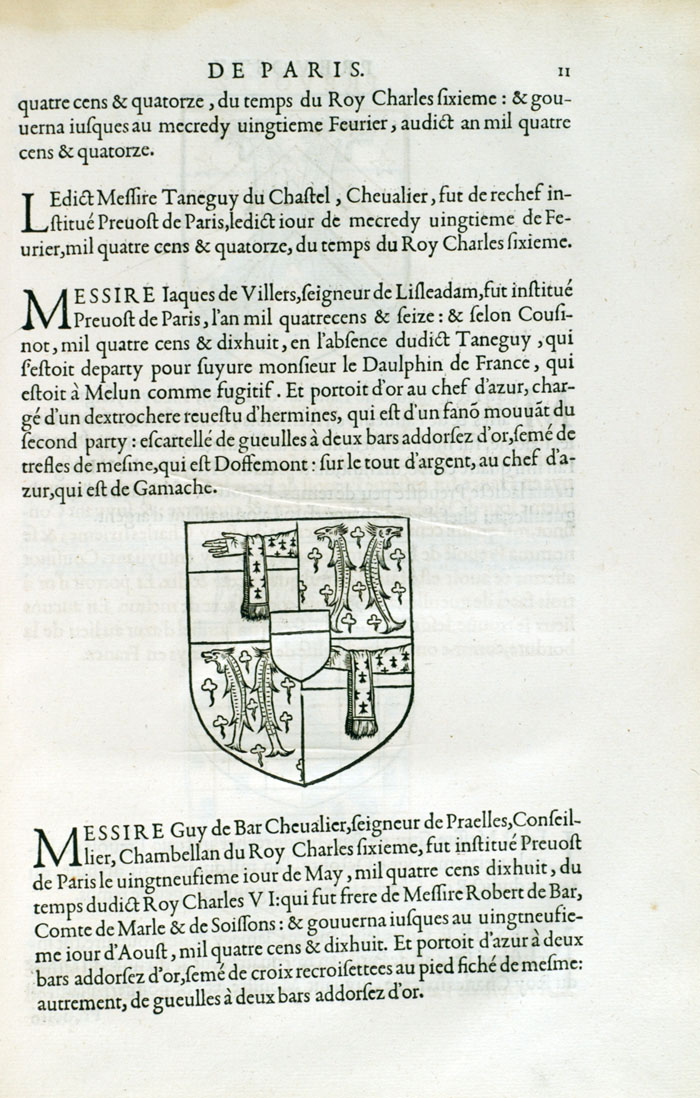 DE PARIS. 11
quatre cens & quatorze, du temps du Roy Charles ſixieme: & gou-
uerna iuſques au mecredy uingtieme Feurier, audict an mil quatre
cens & quatorze.
LEdict Meſſire Taneguy du Chaſtel, Cheualier, fut de rechef in-
ſtitué Preuoſt de Paris, ledict iour de mecredy uingtieme de Fe-
urier, mil quatre cens & quatorze, du temps du Roy Charles ſixieme.
MESSIRE Iaques de Villers, ſeigneur de Liſleadam, fut inſtitué
Preuoſt de Paris, l'an mil quatrecens & ſeize: & ſelon Couſi-
not, mil quatre cens & dixhuit, en l'abſence dudict Taneguy, qui
ſ'eſtoit departy pour ſuyure monſieur le Daulphin de France, qui
eſtoit à Melun comme fugitif. Et portoit d'or au chef d'azur, char-
gé d'un dextrochere reueſtu d'hermines, qui eſt d'un fanõ mouuãt du
ſecond party: eſcartellé de gueulles à deux bars addorſez d'or, ſemé de
trefles de meſme, qui eſt Doffemont: ſur le tout d'argent, au chef d'a-
zur, qui eſt de Gamache.
MESSIRE Guy de Bar Cheualier, ſeigneur de Praelles, Conſeil-
lier, Chambellan du Roy Charles ſixieme, fut inſtitué Preuoſt
de Paris le uingtneufieme iour de May, mil quatre cens dixhuit, du
temps dudict Roy Charles V I: qui fut frere de Meſſire Robert de Bar,
Comte de Marle & de Soiſſons: & gouuerna iuſques au uingtneufie-
me iour d'Aouſt, mil quatre cens & dixhuit. Et portoit d'azur à deux
bars addorſez d'or, ſemé de croix recroiſettees au pied fiché de meſme:
autrement, de gueulles à deux bars addorſez d'or.